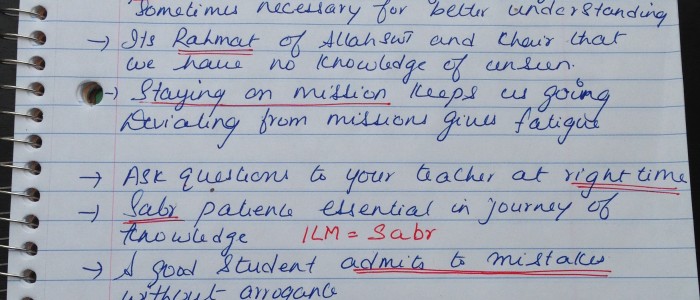 Sometimes necessary for better understanding
→ Its Rahmat of Allah swT and Khair that
we have no knowledge of unseen.
→ Staying on mission keeps us going
Deviating from missions gives fatigue
→ Ask questions to your teacher at right time
→ Sabr patience essential in journey of
knowledge ILM = Sabr
→ A good student admits to mistakes
without arrogance